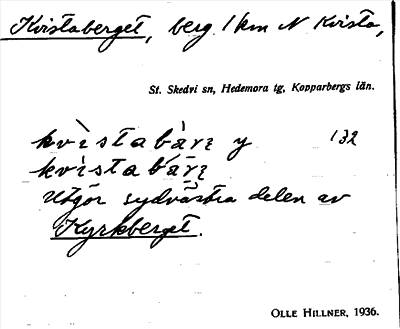 Kvistaberget, berg 1 km N Kvista,
St. Skedvi sn, Hedemora tg, Kopparbergs län.
kvìstabàrꝫ y 132
kvìstabárꝫ
Utgör sydvästra delen av
Kyrkberget.
OLLE HILLNER, 1936.